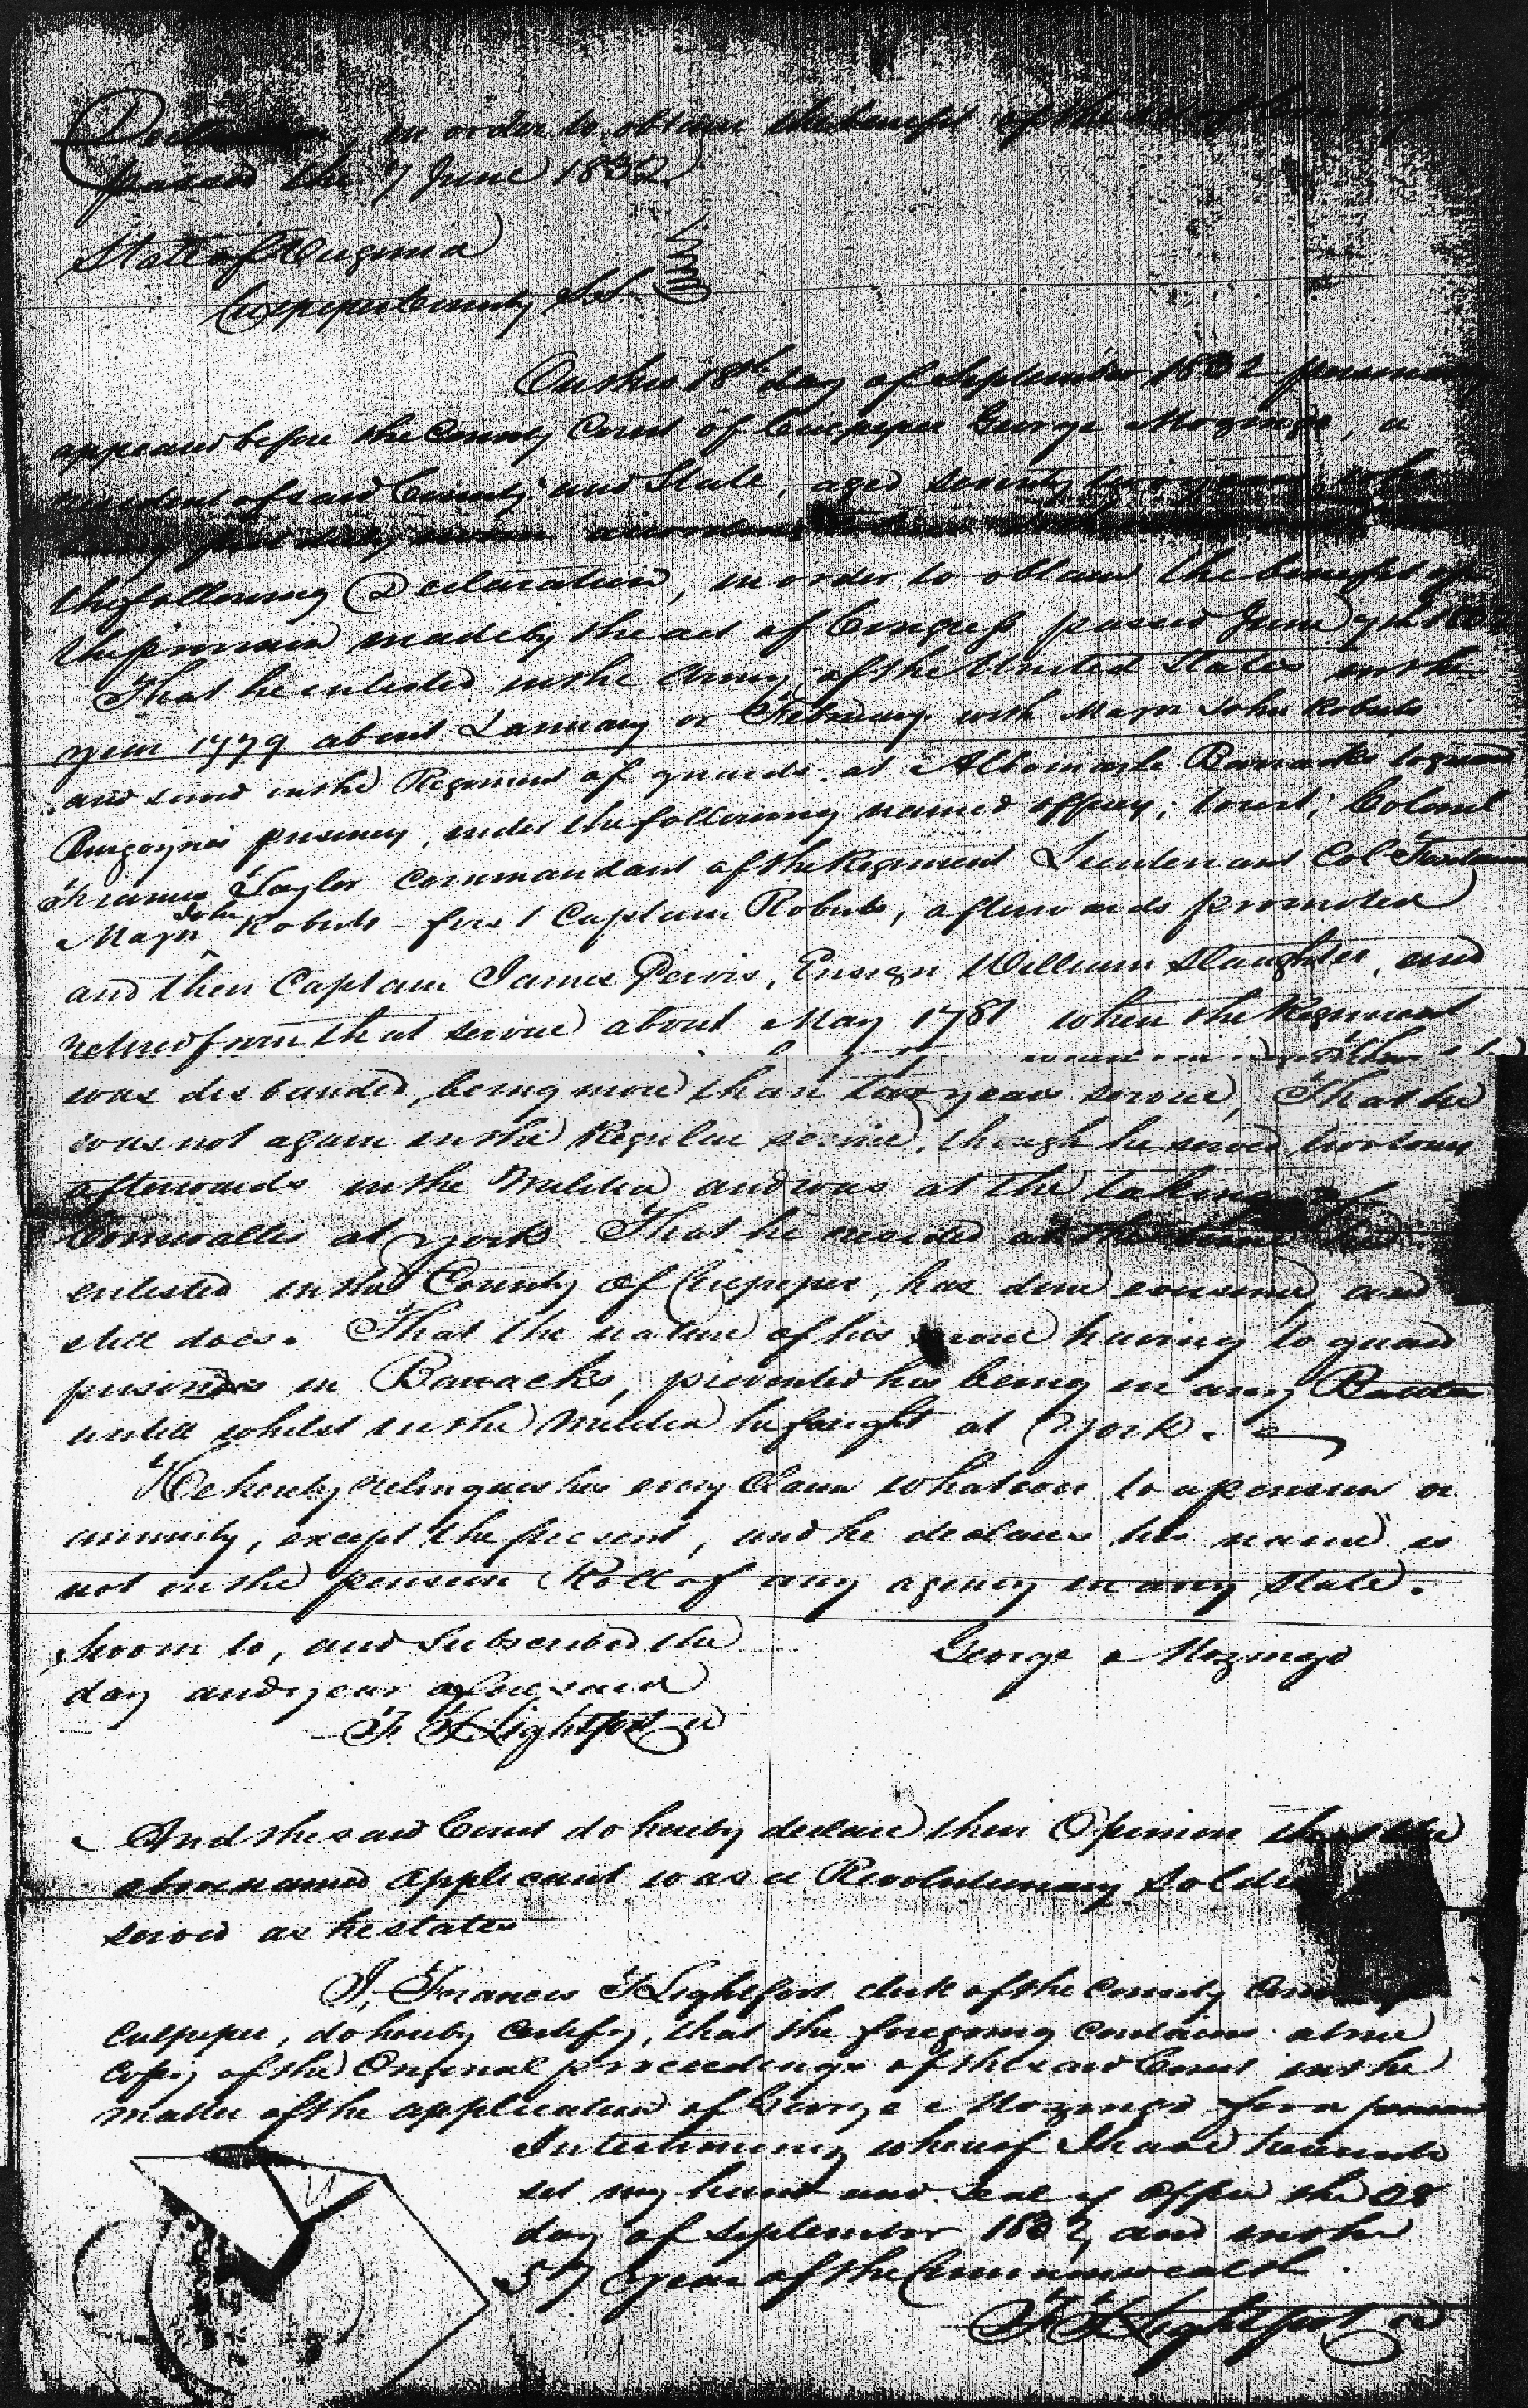 Declaration, in order to obtain the benefit of the act of Congress
passed the 7 June 1832
State of Virginia
Culpeper County S.S.
On this 18th day of September 1832 personally
appeared before the County Court of Culpeper George Mozingo, a
resident of said County and State, aged seventy two years, who
being first duly sworn according to law doth
the following Declaration, in order to obtain the benefit of
the provision made by the act of Congress passed June 7th 1832
That he enlisted in the Army of the United States in the
year 1779 about January or February with Major John Roberts
and served in the Regiment of guards at Albemarle Barracks to guard
Burgoynes prisoners, under the following named officers, to wit; Colonel
Francis Taylor Commandant of the Regiment Lieutenant Col Fontaine
Major John Roberts - first Captain Roberts, afterwards promoted
and then Captain James Pervis, Ensign William Slaughter, and
retired from that service about May 1781 when the Regiment
was disbanded, being more than two years service, That he
was not again in the Regular service, though he served two tours
afterwards in the Militia and was at the taking of
Cornwallis at York. That he resided at the time he
enlisted in the County of Culpeper, has done ever since, and
still does. That the nature of his service having to guard
prisoners in Barracks, prevented his being in any Battle
untill whilst in the Militia he fought at York.
He hereby relinquishes every Claim whatever to a pension or
annuity, except the present, and he declares his name is
not on the pension Roll of any agency in any State.
Sworn to, and Subscribed the
day and year aforesaid
George Mozingo
F. T. Lightfoot
And the said Court do hereby declare their Opinion that the
above named applicant was a Revolutionary Soldier
served as he states
I, Francis T Lightfoot clerk of the County Court of
Culpeper, do hereby Certify, that the foregoing Contains a true
Copy of the Original proceedings of the said Court in the
matter of the application of George Mozingo for a pension
In testimony whereof I have hereunto
set my hand and seal of Office the 28
day of September 1832, and in the
57 Year of the Commonwealth.
F. T. Lightfoot